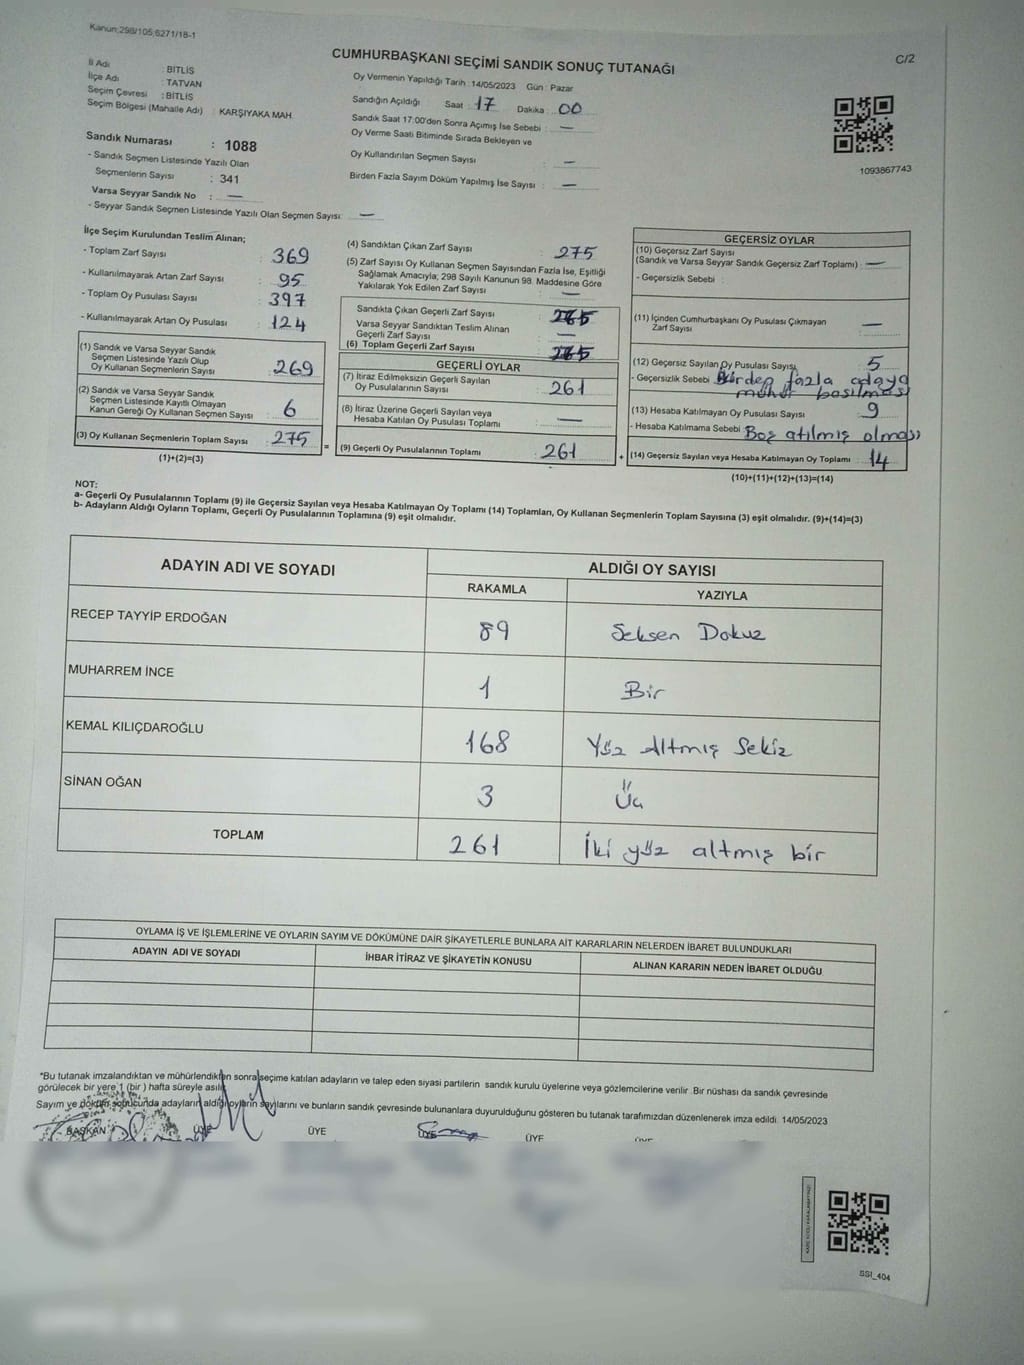 Kanun;298/105;6271/18-1
C/2
CUMHURBAŞKANI SEÇİMİ SANDIK SONUÇ TUTANAĞI
İl Adı : BİTLİS
İlçe Adı : TATVAN
Seçim Çevresi : BİTLİS
Seçim Bölgesi (Mahalle Adı) : KARŞIYAKA MAH.
Oy Vermenin Yapıldığı Tarih :14/05/2023 Gün : Pazar
Sandığın Açıldığı Saat : 17 Dakika : 00
Sandık Saat 17:00'den Sonra Açımış İse Sebebi : —
Oy Verme Saati Bitiminde Sırada Bekleyen ve
Oy Kullandırılan Seçmen Sayısı : —
Birden Fazla Sayım Döküm Yapılmış İse Sayısı : —
1093867743
Sandık Numarası : 1088
- Sandık Seçmen Listesinde Yazılı Olan
Seçmenlerin Sayısı : 341
Varsa Seyyar Sandık No : —
- Seyyar Sandık Seçmen Listesinde Yazılı Olan Seçmen Sayısı: —
İlçe Seçim Kurulundan Teslim Alınan;
- Toplam Zarf Sayısı : 369
- Kullanılmayarak Artan Zarf Sayısı : 95
- Toplam Oy Pusulası Sayısı : 397
- Kullanılmayarak Artan Oy Pusulası : 124
(1) Sandık ve Varsa Seyyar Sandık
Seçmen Listesinde Yazılı Olup
Oy Kullanan Seçmenlerin Sayısı : 269
(2) Sandık ve Varsa Seyyar Sandık
Seçmen Listesinde Kayıtlı Olmayan
Kanun Gereği Oy Kullanan Seçmen Sayısı : 6
(3) Oy Kullanan Seçmenlerin Toplam Sayısı : 275
(1)+(2)=(3)
=
(4) Sandıktan Çıkan Zarf Sayısı : 275
(5) Zarf Sayısı Oy Kullanan Seçmen Sayısından Fazla İse, Eşitliği
Sağlamak Amacıyla; 298 Sayılı Kanunun 98. Maddesine Göre
Yakılarak Yok Edilen Zarf Sayısı : —
Sandıkta Çıkan Geçerli Zarf Sayısı :
Varsa Seyyar Sandıktan Teslim Alınan
Geçerli Zarf Sayısı : —
(6) Toplam Geçerli Zarf Sayısı :
GEÇERLİ OYLAR
(7) İtiraz Edilmeksizin Geçerli Sayılan
Oy Pusulalarının Sayısı : 261
(8) İtiraz Üzerine Geçerli Sayılan veya
Hesaba Katılan Oy Pusulası Toplamı : —
(9) Geçerli Oy Pusulalarının Toplamı : 261
+
GEÇERSİZ OYLAR
(10) Geçersiz Zarf Sayısı
(Sandık ve Varsa Seyyar Sandık Geçersiz Zarf Toplamı) : —
- Geçersizlik Sebebi :
(11) İçinden Cumhurbaşkanı Oy Pusulası Çıkmayan
Zarf Sayısı : —
(12) Geçersiz Sayılan Oy Pusulası Sayısı : 5
- Geçersizlik Sebebi : Birden fazla adaya
mühür basılması
(13) Hesaba Katılmayan Oy Pusulası Sayısı : 9
- Hesaba Katılmama Sebebi : Boş atılmış olması
(14) Geçersiz Sayılan veya Hesaba Katılmayan Oy Toplamı : 14
(10)+(11)+(12)+(13)=(14)
NOT:
a- Geçerli Oy Pusulalarının Toplamı (9) ile Geçersiz Sayılan veya Hesaba Katılmayan Oy Toplamı (14) Toplamları, Oy Kullanan Seçmenlerin Toplam Sayısına (3) eşit olmalıdır. (9)+(14)=(3)
b- Adayların Aldığı Oyların Toplamı, Geçerli Oy Pusulalarının Toplamına (9) eşit olmalıdır.
ADAYIN ADI VE SOYADI ALDIĞI OY SAYISI
RAKAMLA YAZIYLA
RECEP TAYYİP ERDOĞAN 89 Seksen Dokuz
MUHARREM İNCE 1 Bir
KEMAL KILIÇDAROĞLU 168 Yüz Altmış Sekiz
SİNAN OĞAN 3 Üç
TOPLAM 261 İki yüz altmış bir
OYLAMA İŞ VE İŞLEMLERİNE VE OYLARIN SAYIM VE DÖKÜMÜNE DAİR ŞİKAYETLERLE BUNLARA AİT KARARLARIN NELERDEN İBARET BULUNDUKLARI
ADAYIN ADI VE SOYADI İHBAR İTİRAZ VE ŞİKAYETİN KONUSU ALINAN KARARIN NEDEN İBARET OLDUĞU
*Bu tutanak imzalandıktan ve mühürlendikten sonra seçime katılan adayların ve talep eden siyasi partilerin sandık kurulu üyelerine veya gözlemcilerine verilir .Bir nüshası da sandık çevresinde
görülecek bir yere 1 (bir ) hafta süreyle asılır.
Sayım ve döküm sonucunda adayların aldığı oyların sayılarını ve bunların sandık çevresinde bulunanlara duyurulduğunu gösteren bu tutanak tarafımızdan düzenlenerek imza edildi. 14/05/2023
BAŞKAN ÜYE ÜYE ÜYE ÜYE
SSI_404